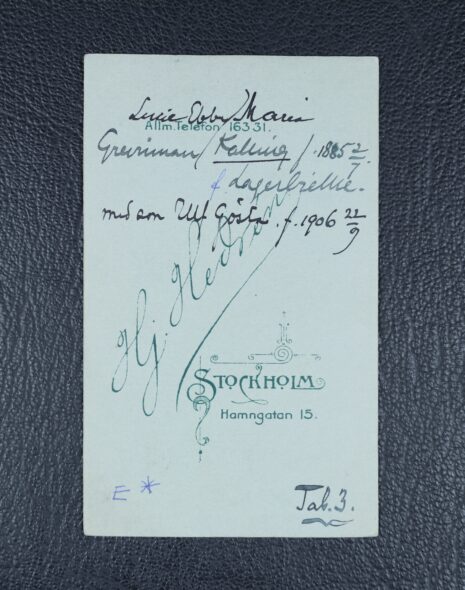 Lucie Ebba Maria
Allm. Telefon 163 31.
Grevinnan / Kalling / f. 1885 2/7.
f Lagerbielke.
med son Ulf Gösta. f. 1906 22/9
Hj. Hedström
STOCKHOLM
Hamngatan 15.
E *
Tab. 3.